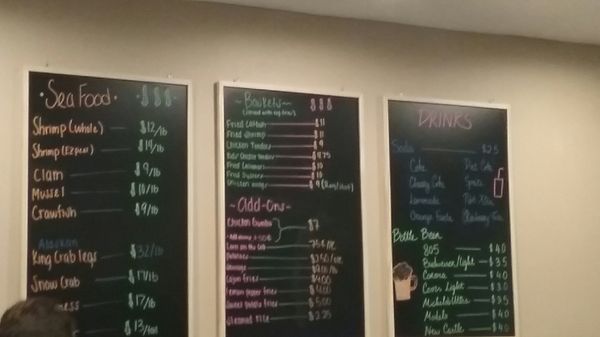 Sea Food $ $ $
Shrimp (whole) $12/lb
Shrimp (EZ peel) $14/lb
Clam $9/lb
Mussel $10/lb
Crawfish $9/lb
Alaskan
King Crab legs $32/lb
Snow Crab $17/lb
$17/lb
$13/
Baskets $ $ $
Fried Catfish $11
Fried Shrimp $11
Chicken Tenders $9
Kids' Chicken Tenders
Fried Calamari $10
Fried Oyster $10
Chicken wings $9
Add-Ons
Chicken Gumbo $7
Corn on the Cob 75¢
Potatoes
Sausage
Cajun Fries $4.00
Lemon pepper Fries $4.00
Sweet potato Fries $5.00
Steamed Rice $2.25
DRINKS
Soda $2.5
Coke Diet Coke
Cherry Coke Sprite
Lemonade
Orange Fanta
Bottle Beer
805 $4.0
Budweiser/Light $3.5
Corona $4.0
Coors Light $3.0
Michelob Ultra $3.5
Modelo $4.0
New Castle $4.0